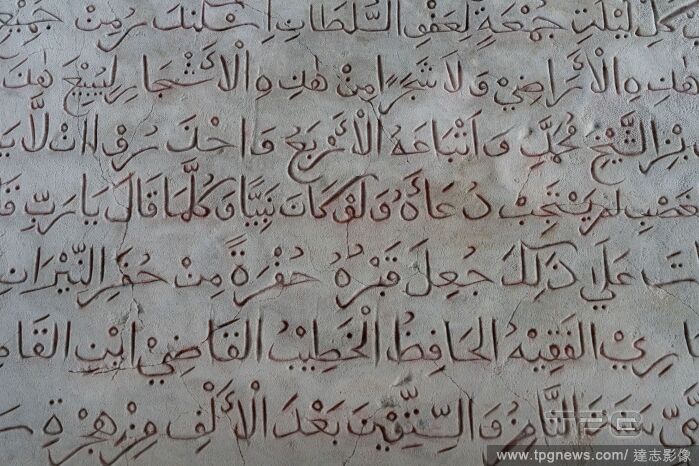 ليلت جمعة لعفو السلطان اسكندر من جميع
هذه الأراضي ولا شجرا من هذه الأشجار ليبيع هذ
الشيخ محمد واتباعه الأربع واحذروا ان لا
لم يستجب دعاءه ولو كان نبيا وكلما قال يا رب
على ذلك جعل قبره حفرة من حفر النيران
الفقيه الحافظ الخطيب القاضي ابن
الثامن والستين بعد الألف من هجرة
TPG
www.tpgnews.com/ 達志影像